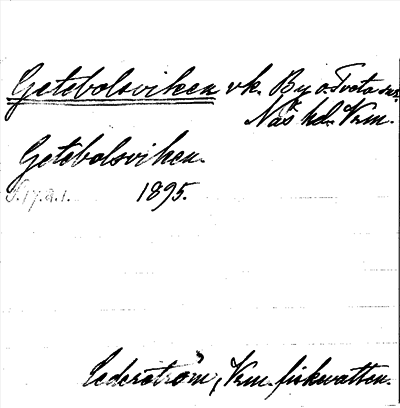 Getebolsviken vk. By o. Tveta snr.
Näs hd. Vrm.
Getebolsviken.
S. 17. a. 1. 1895.
Cederström, Vrm. fiskevatten.